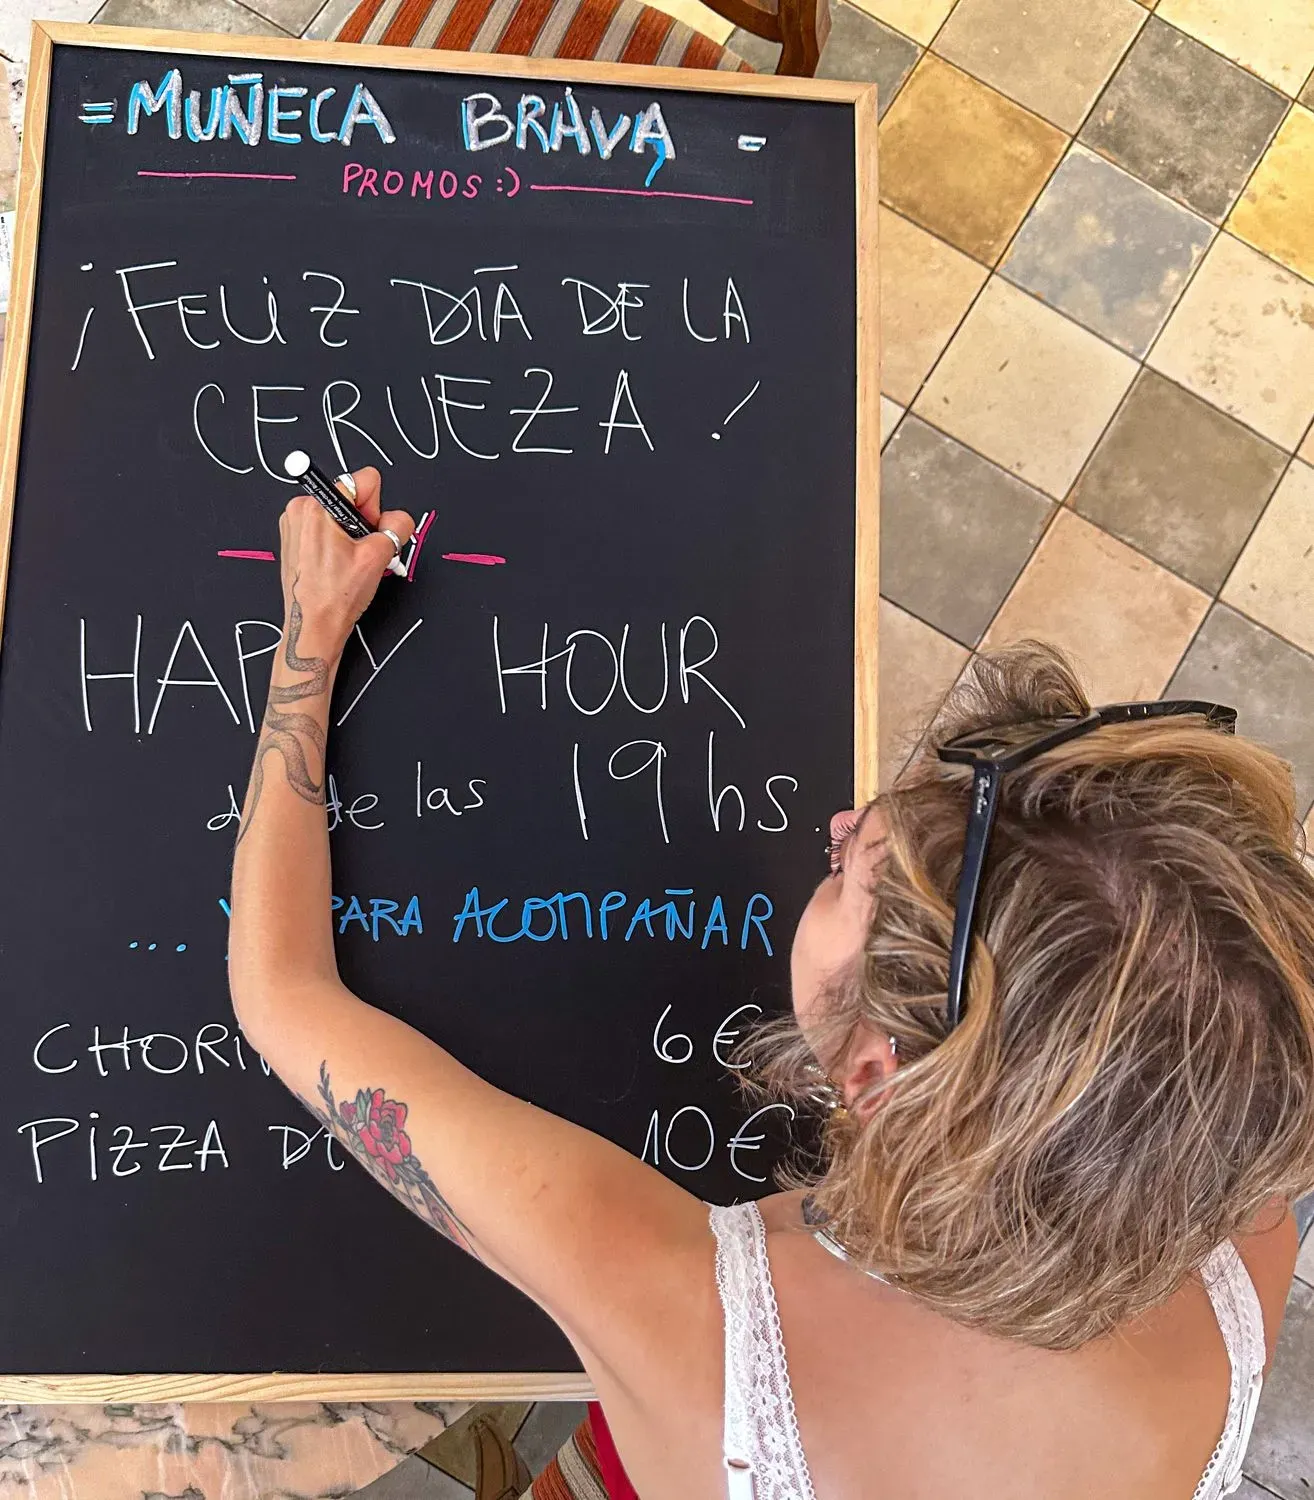 = MUÑECA BRAVA -
PROMOS :)
¡FELIZ DÍA DE LA
CERVEZA!
HAPPY HOUR
desde las 19 hs.
... PARA ACOMPAÑAR
6€
PIZZA 10€